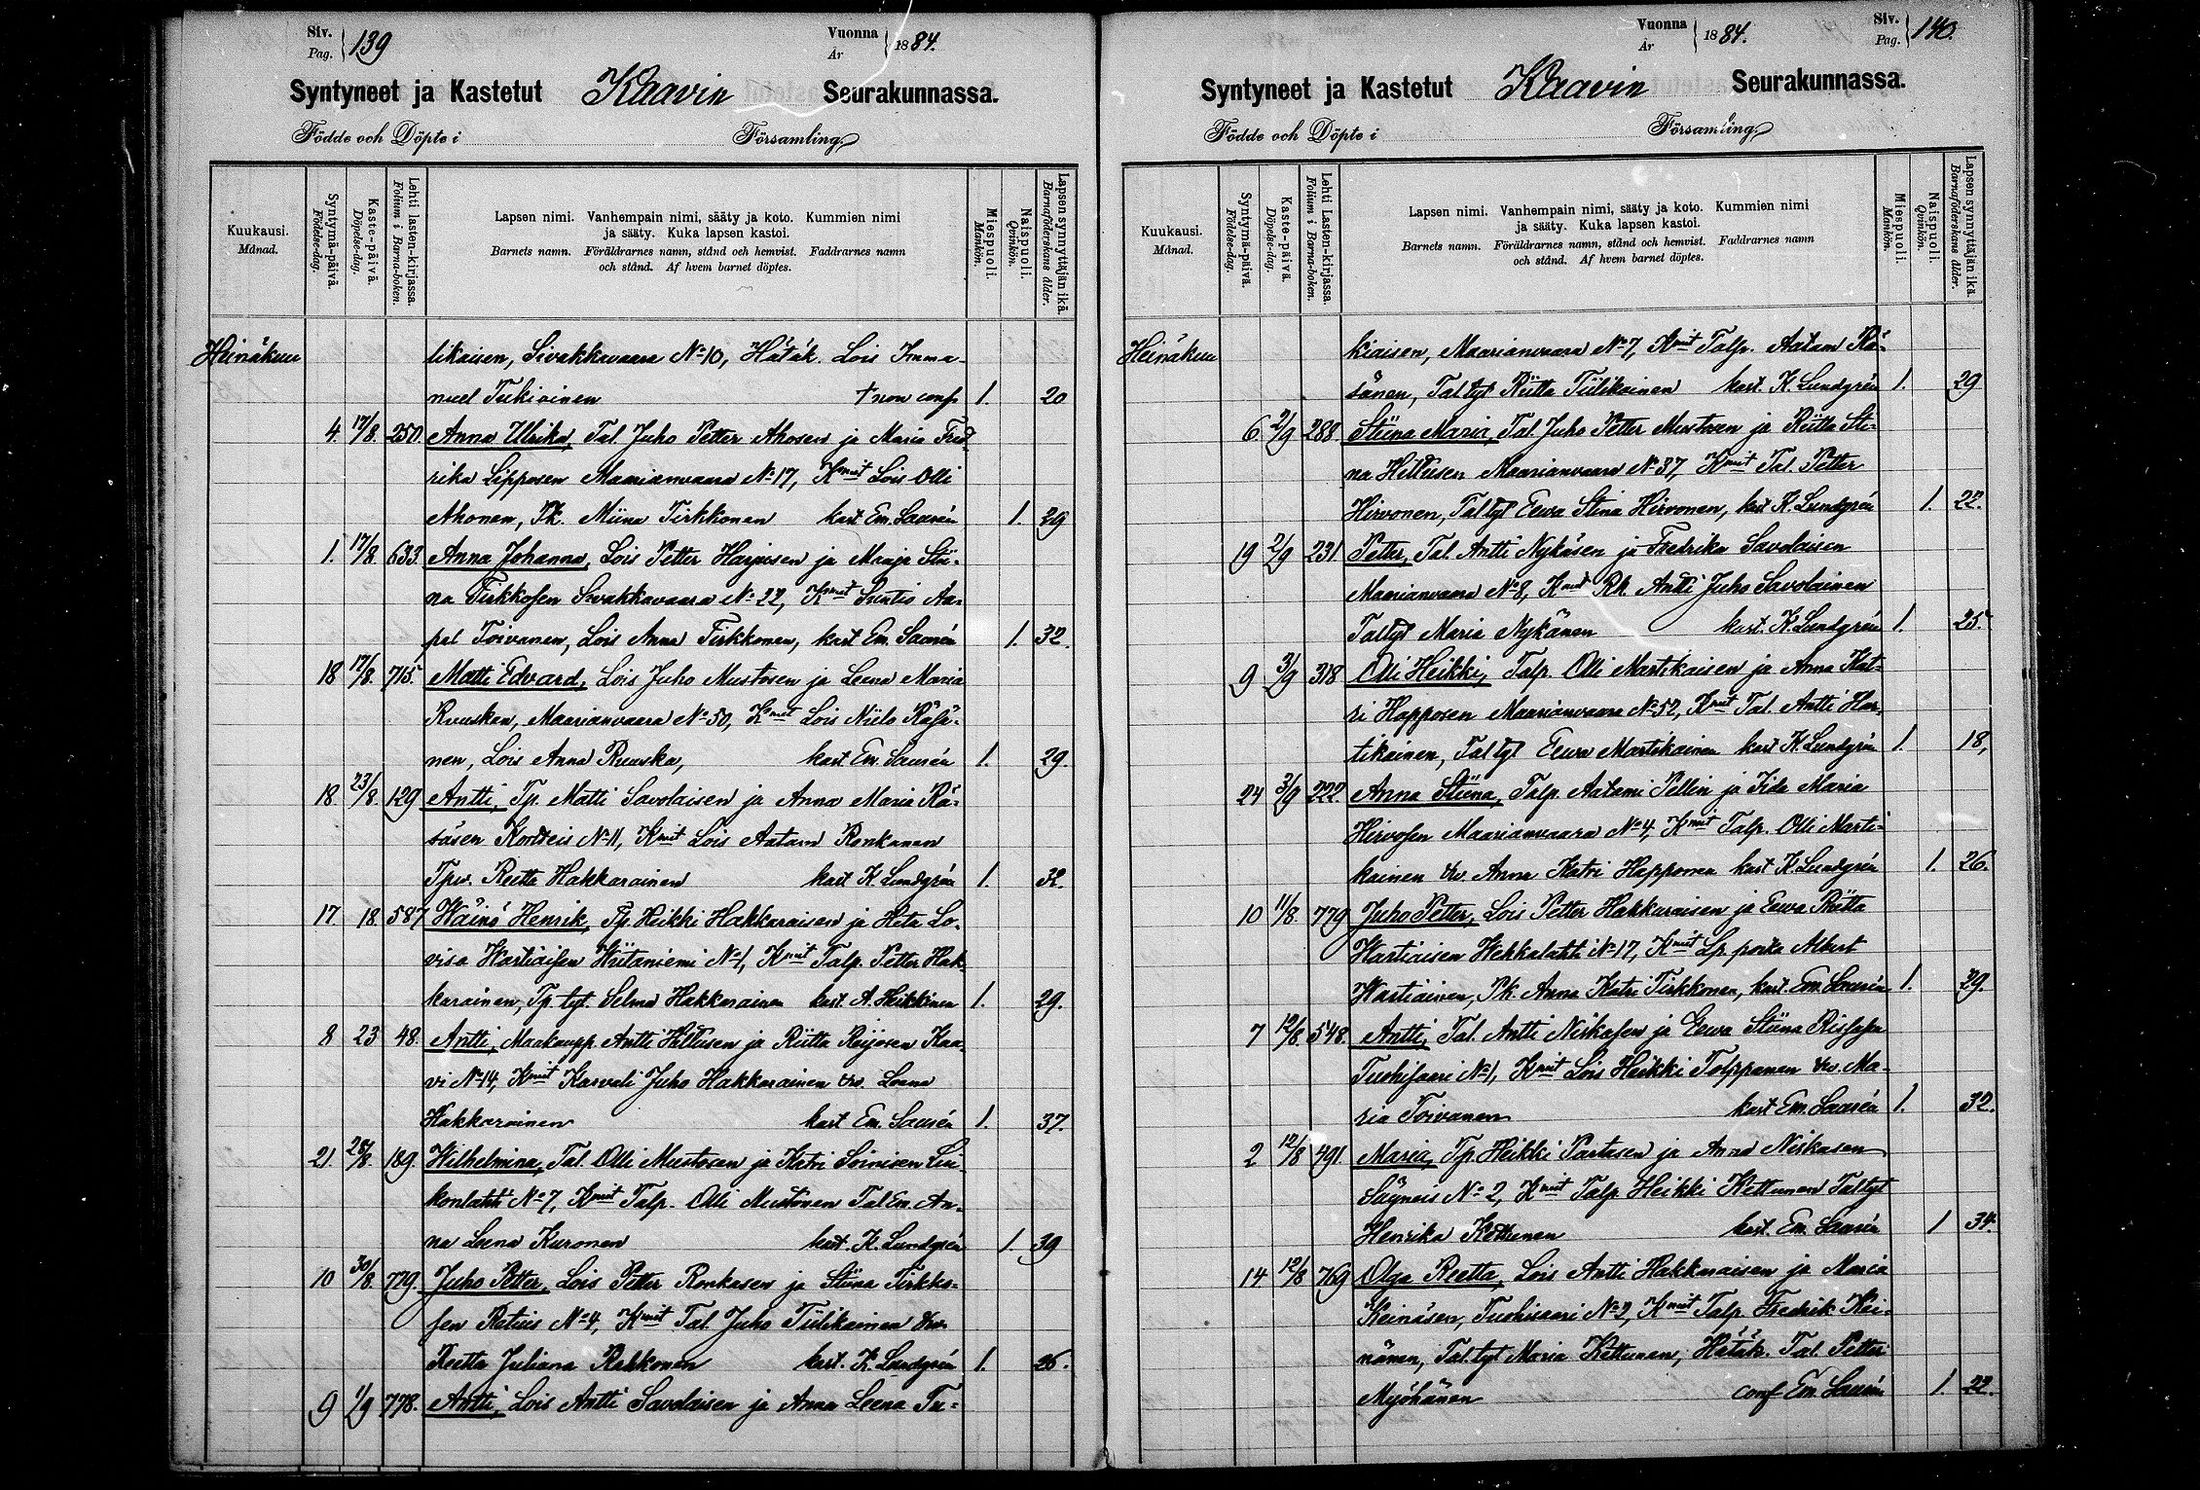 Siv. Pag. 139
Vuonna År 1884.
Syntyneet ja Kastetut Kaavin Seurakunnassa.
Födde och Döpte i Församling.
Kuukausi. Månad.
Syntymä-päivä. Födelse-dag.
Kaste-päivä. Döpelse-dag.
Lehti lasten-kirjassa. Folium i Barna-boken.
Lapsen nimi. Vanhempain nimi, sääty ja koto. Kummien nimi
ja sääty. Kuka lapsen kastoi.
Barnets namn. Föräldrarnes namn, stånd och hemvist. Faddrarnes namn
och stånd. Af hvem barnet döptes.
Miespuoli. Mankön.
Naispuoli. Qvinkön.
Lapsen synnyttäjän ikä. Barnaföderskans ålder.
Heinäkuu likaisen, Sivakkavaara No 10, Hätäk. Lois Imma-
nuel Tukiainen † non conf. 1. 20
4. 17/8. 250. Anna Ulrika, Tal. Juho Petter Ahosen ja Maria Fred-
rika Lipposen Maarianvaara No 17, Kmit Lois Olli
Ahonen, Pk. Miina Tirkkonen kast Em. Saurén 1. 29
1. 17/8. 633. Anna Johanna, Lois Petter Harjusen ja Maaja Stii-
na Tirkkosen Sivakkavaara No 22, Kmit Suntio Aa-
pel Toivanen, Lois Anna Tirkkonen, kast Em. Saurén 1. 32.
18 17/8. 715. Matti Edvard, Lois Juho Mustosen ja Leena Maria
Ruuskan, Maarianvaara No 50, Kmit Lois Niilo Räsä-
nen, Lois Anna Ruuska, kast Em. Saurén 1. 29.
18. 23/8. 129 Antti, Tp. Matti Savolaisen ja Anna Maria Rä-
säsen Kortteis No 11, Kmit Lois Aatam Ronkanen
Tpv. Reetta Hakkarainen kast K. Lundgrén 1. 32.
17. 18. 587 Wäinö Henrik, Tp. Heikki Hakkaraisen ja Heta Lo-
visa Wartiaisen Niitaniemi No 1, Kmit Talp. Petter Hak-
karainen, Tp. tyt. Selma Hakkarainen kast. A. Heikkinen 1. 29.
8 23 48. Antti, Maakaupp. Antti Hiltusen ja Riitta Reijosen Kaa-
vi No 14, Kmit Karvali Juho Hakkarainen vo. Leena
Hakkarainen kast Em. Saurén 1. 37.
21. 28/8. 189. Wilhelmina, Tal. Olli Mustosen ja Katri Soinisen Lui-
konlahti No 7, Kmit Talp. Olli Mustonen Tal Em. An-
na Leena Kuronen kast. K. Lundgrén 1. 39
10 30/8. 779. Juho Petter, Lois Petter Ronkasen ja Stiina Tirkko-
sen Retuis No 4, Kmit Tal. Juho Tiilikainen vo.
Reetta Juliana Rahkonen kast. K. Lundgrén 1. 26.
9 1/9 778. Antti, Lois Antti Savolaisen ja Anna Leena Tu-
Vuonna År 1884.
Siv. Pag. 140.
Syntyneet ja Kastetut Kaavin Seurakunnassa.
Födde och Döpte i Församling.
Kuukausi. Månad.
Syntymä-päivä. Födelse-dag.
Kaste-päivä. Döpelse-dag.
Lehti Lasten-kirjassa. Folium i Barna-boken.
Lapsen nimi. Vanhempain nimi, sääty ja koto. Kummien nimi
ja sääty. Kuka lapsen kastoi.
Barnets namn. Föräldrarnes namn, stånd och hemvist. Faddrarnes namn
och stånd. Af hvem barnet döptes.
Miespuoli. Mankön.
Naispuoli. Qvinkön.
Lapsen synnyttäjän ikä. Barnaföderskans ålder.
Heinäkuu kiaisen, Maarianvaara No 7, Kmit Talp. Aatam Rä-
sänen, Tal tyt Riitta Tiilikainen kast. K. Lundgrén 1. 29
6. 2/9 288 Stiina Maria, Tal. Juho Petter Mustosen ja Riitta Sti-
na Hiltusen Maarianvaara No 37, Kmit Tal. Petter
Hirvonen, Tal tyt Eeva Stina Hirvonen, kast K. Lundgrén 1. 22.
19 2/9 231. Petter, Tal. Antti Nykäsen ja Fredrika Savolaisen
Maarianvaara No 8, Kmit Rk. Antti Juho Savolainen
Tal tyt Maria Nykänen kast. K. Lundgrén 1. 25.
9 3/9 318 Olli Heikki, Talp. Olli Martikaisen ja Anna Kat-
ri Happosen Maarianvaara No 52, Kmit Tal. Antti Mar-
tikainen, Tal tyt Eeva Martikainen kast K. Lundgrén 1. 18,
24 3/9 222. Anna Stiina, Talp. Aatami Pellin ja Iida Maria
Hirvosen Maarianvaara No 4, Kmit Talp. Olli Marti-
kainen vo. Anna Katri Happonen kast K. Lundgrén 1. 26.
10 11/8. 779 Juho Petter, Lois Petter Hakkaraisen ja Eeva Riitta
Wartiaisen Wehkalahti No 17, Kmit Lp. poika Albert
Wartiainen, Pk. Anna Katri Tirkkonen, kast. Em. Saurén 1. 29.
7 12/8. 548. Antti, Tal. Antti Niskasen ja Eeva Stiina Rissasen
Tuohisaari No 1, Kmit Lois Heikki Tolppanen vo. Ma-
ria Toivanen kast Em. Saurén 1. 32.
2 12/8 491. Maria, Tp. Heikki Partasen ja Anna Niskasen
Säyneis No 2, Kmit Talp. Heikki Kettunen Tal tyt
Henrika Kettunen kast. Em. Saurén 1 34.
14 12/8 769 Olga Reetta, Lois Antti Hakkaraisen ja Maria
Keinäsen, Tuohisaari No 2, Kmit Talp. Fredrik Kei-
nänen, Tal. tyt Maria Kettunen, Hätäk. Tal. Petter
Myöhänen conf Em. Saurén 1. 22.